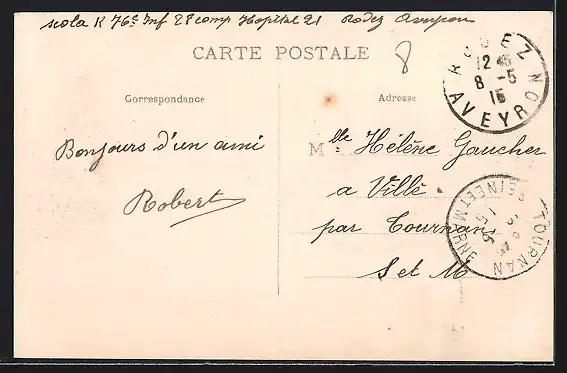 scola R 76e Inf 28 comp Hopital 21 Rodez Aveyron
CARTE POSTALE
8
RODEZ
12 45
8 -5
15
AVEYRON
Correspondance
Adresse
Bonjours d'un ami
Robert
Mlle Hélène Gaucher
a Villé
par Tournans
S et M
TOURNAN
SEINE ET MARNE